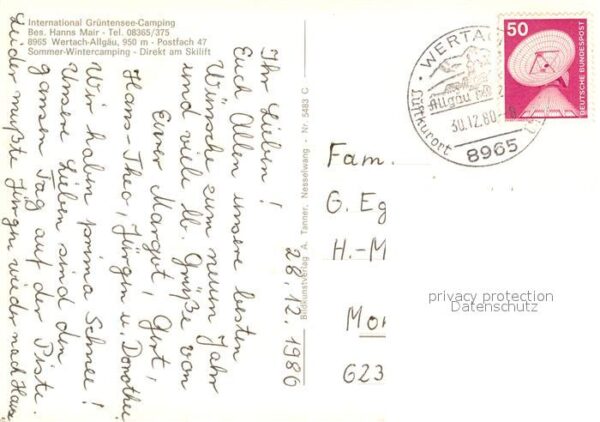 International Grüntensee-Camping
Bes. Hanns Mair - Tel. 08365/375
8965 Wertach-Allgäu, 950 m - Postfach 47
Sommer-Wintercamping - Direkt am Skilift
28.12.1980
Ihr Lieben!
Euch Allen unsere besten
Wünsche zum neuen Jahr
und viele lb. Grüße von
Eurer Margut, Gert,
Hans-Theo, Jürgen u. Dorothee
Wir haben prima Schnee!
Unsere Lieben sind den
ganzen Tag auf der Piste.
Leider mußte Jürgen wieder nach Haus
Bildkunstverlag A. Tanner, Nesselwang - Nr. 5483 C
WERTACH
Allgäu
30.12.80-
Luftkurort
8965
50
DEUTSCHE BUNDESPOST
Fam.
G. Eg
H.-M
Mor
623
privacy protection
Datenschutz